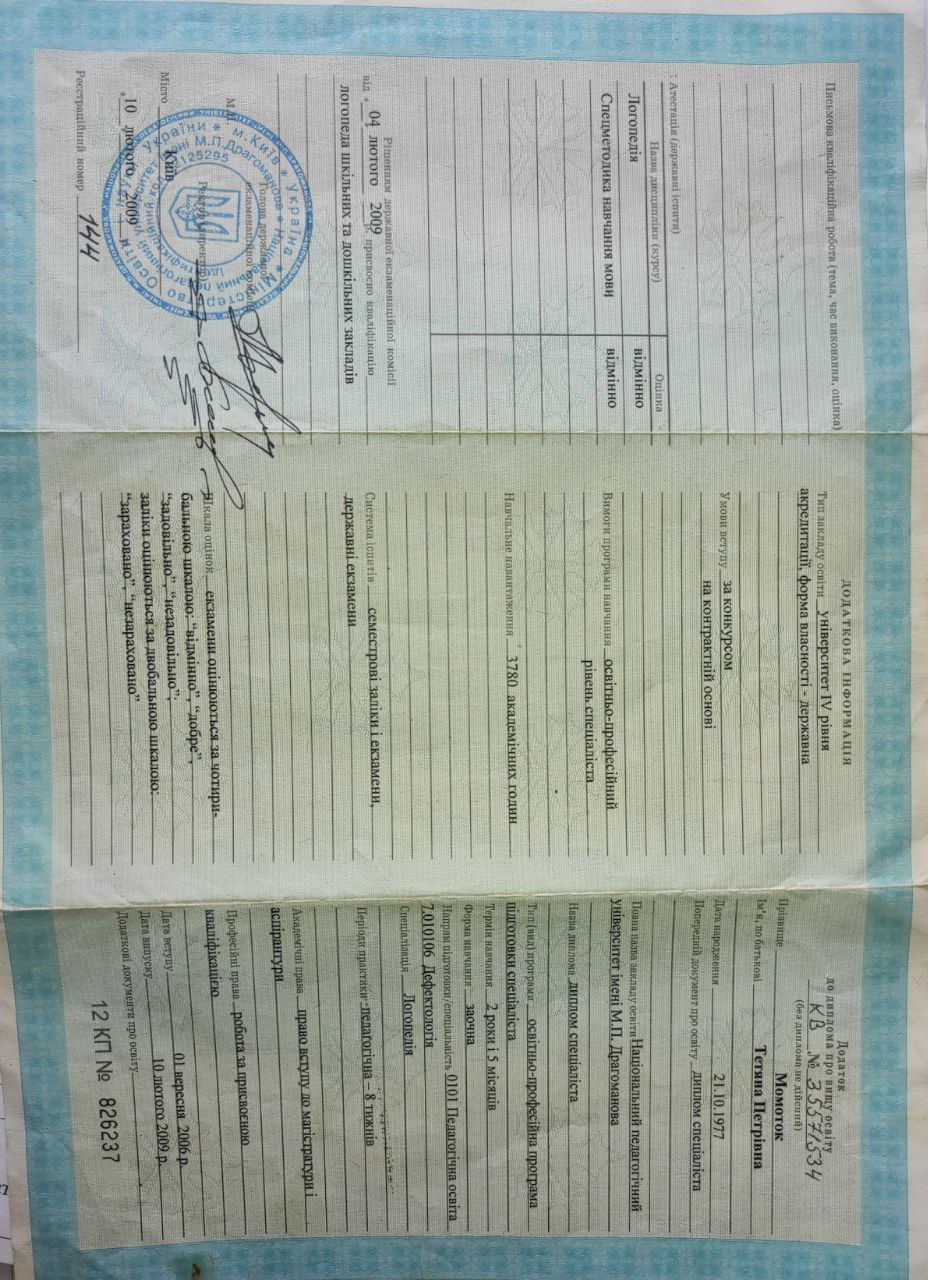 Додаток
до диплома про вищу освіту
КВ № 35571534
(без диплома не дійсний)
Прізвище Момоток
Ім'я, по батькові Тетяна Петрівна
Дата народження 21.10.1977
Попередній документ про освіту диплом спеціаліста
Повна назва закладу освіти Національний педагогічний
університет імені М.П. Драгоманова
Назва диплома диплом спеціаліста
Тип(вид) програми освітньо-професійна програма
підготовки спеціаліста
Термін навчання 2 роки і 5 місяців
Форма навчання заочна
Напрям підготовки/спеціальність 0101 Педагогічна освіта
7.010106 Дефектологія
Спеціалізація Логопедія
Періоди практики: педагогічна – 8 тижнів
Академічні права право вступу до магістратури і
аспірантури
Професійні права робота за присвоєною
кваліфікацією
Дата вступу 01 вересня 2006.р.
Дата випуску 10 лютого 2009.р.
Додаткові документи про освіту
12 КП № 826237
ДОДАТКОВА ІНФОРМАЦІЯ
Тип закладу освіти університет IV рівня
акредитації, форма власності - державна
Умови вступу за конкурсом
на контрактній основі
Вимоги програми навчання освітньо-професійний
рівень спеціаліста
Навчальне навантаження 3780 академічних годин
Система іспитів семестрові заліки і екзамени,
державні екзамени
Шкала оцінок екзамени оцінюються за чотири-
бальною шкалою: “відмінно”, “добре”,
“задовільно”, “незадовільно”;
заліки оцінюються за двобальною шкалою:
“зараховано”, “незараховано”
Письмова кваліфікаційна робота (тема, час виконання, оцінка)
Атестація (державні іспити)
Назва дисципліни (курсу) Оцінка
Логопедія відмінно
Спецметодика навчання мови відмінно
Рішенням державної екзаменаційної комісії
від 04 лютого 2009 присвоєно кваліфікацію
логопеда шкільних та дошкільних закладів
Голова державної
екзаменаційної комісії
М.П.
Ректор (директор)
Місто Київ
10 лютого 2009
Реєстраційний номер 144